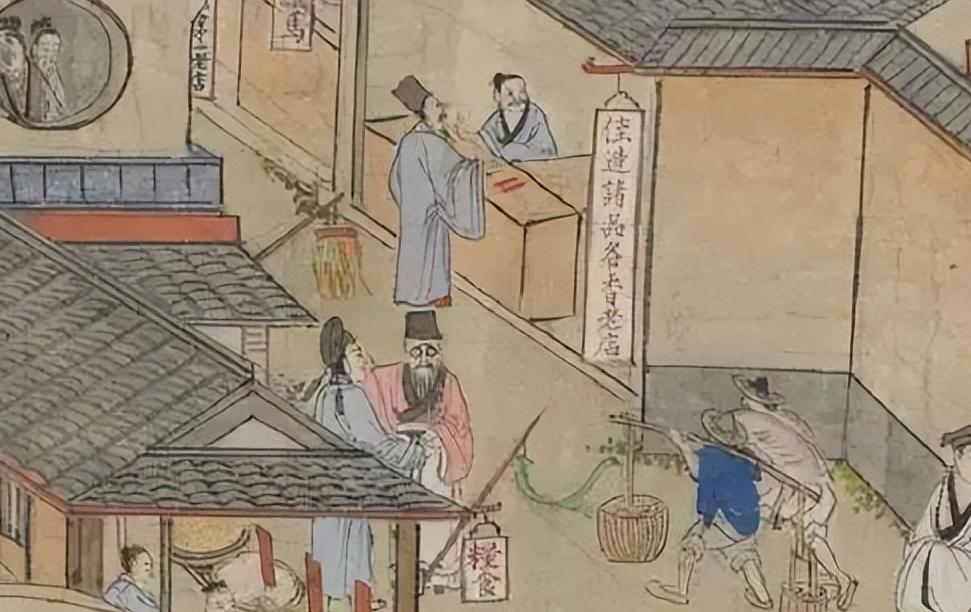 老店
馬
佳造諸品各香老店
糧食